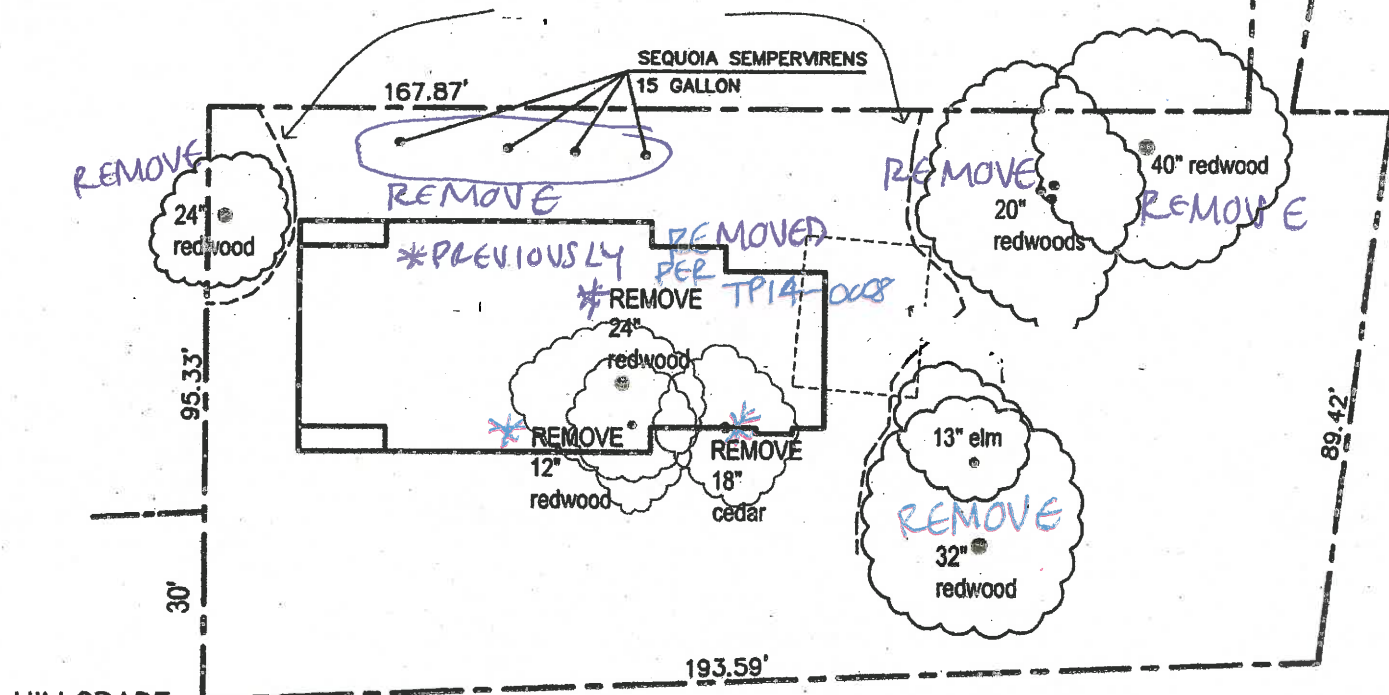 SEQUOIA SEMPERVIRENS
15 GALLON
167.87'
REMOVE
REMOVE
24"
redwood
REMOVE
20"
redwoods
40" redwood
REMOVE
*PREVIOUSLY REMOVED
PER
TP14-0008
* REMOVE
24"
redwood
* REMOVE
12"
redwood
*
REMOVE
18"
cedar
13" elm
REMOVE
32"
redwood
95.33'
89.42'
30'
193.59'